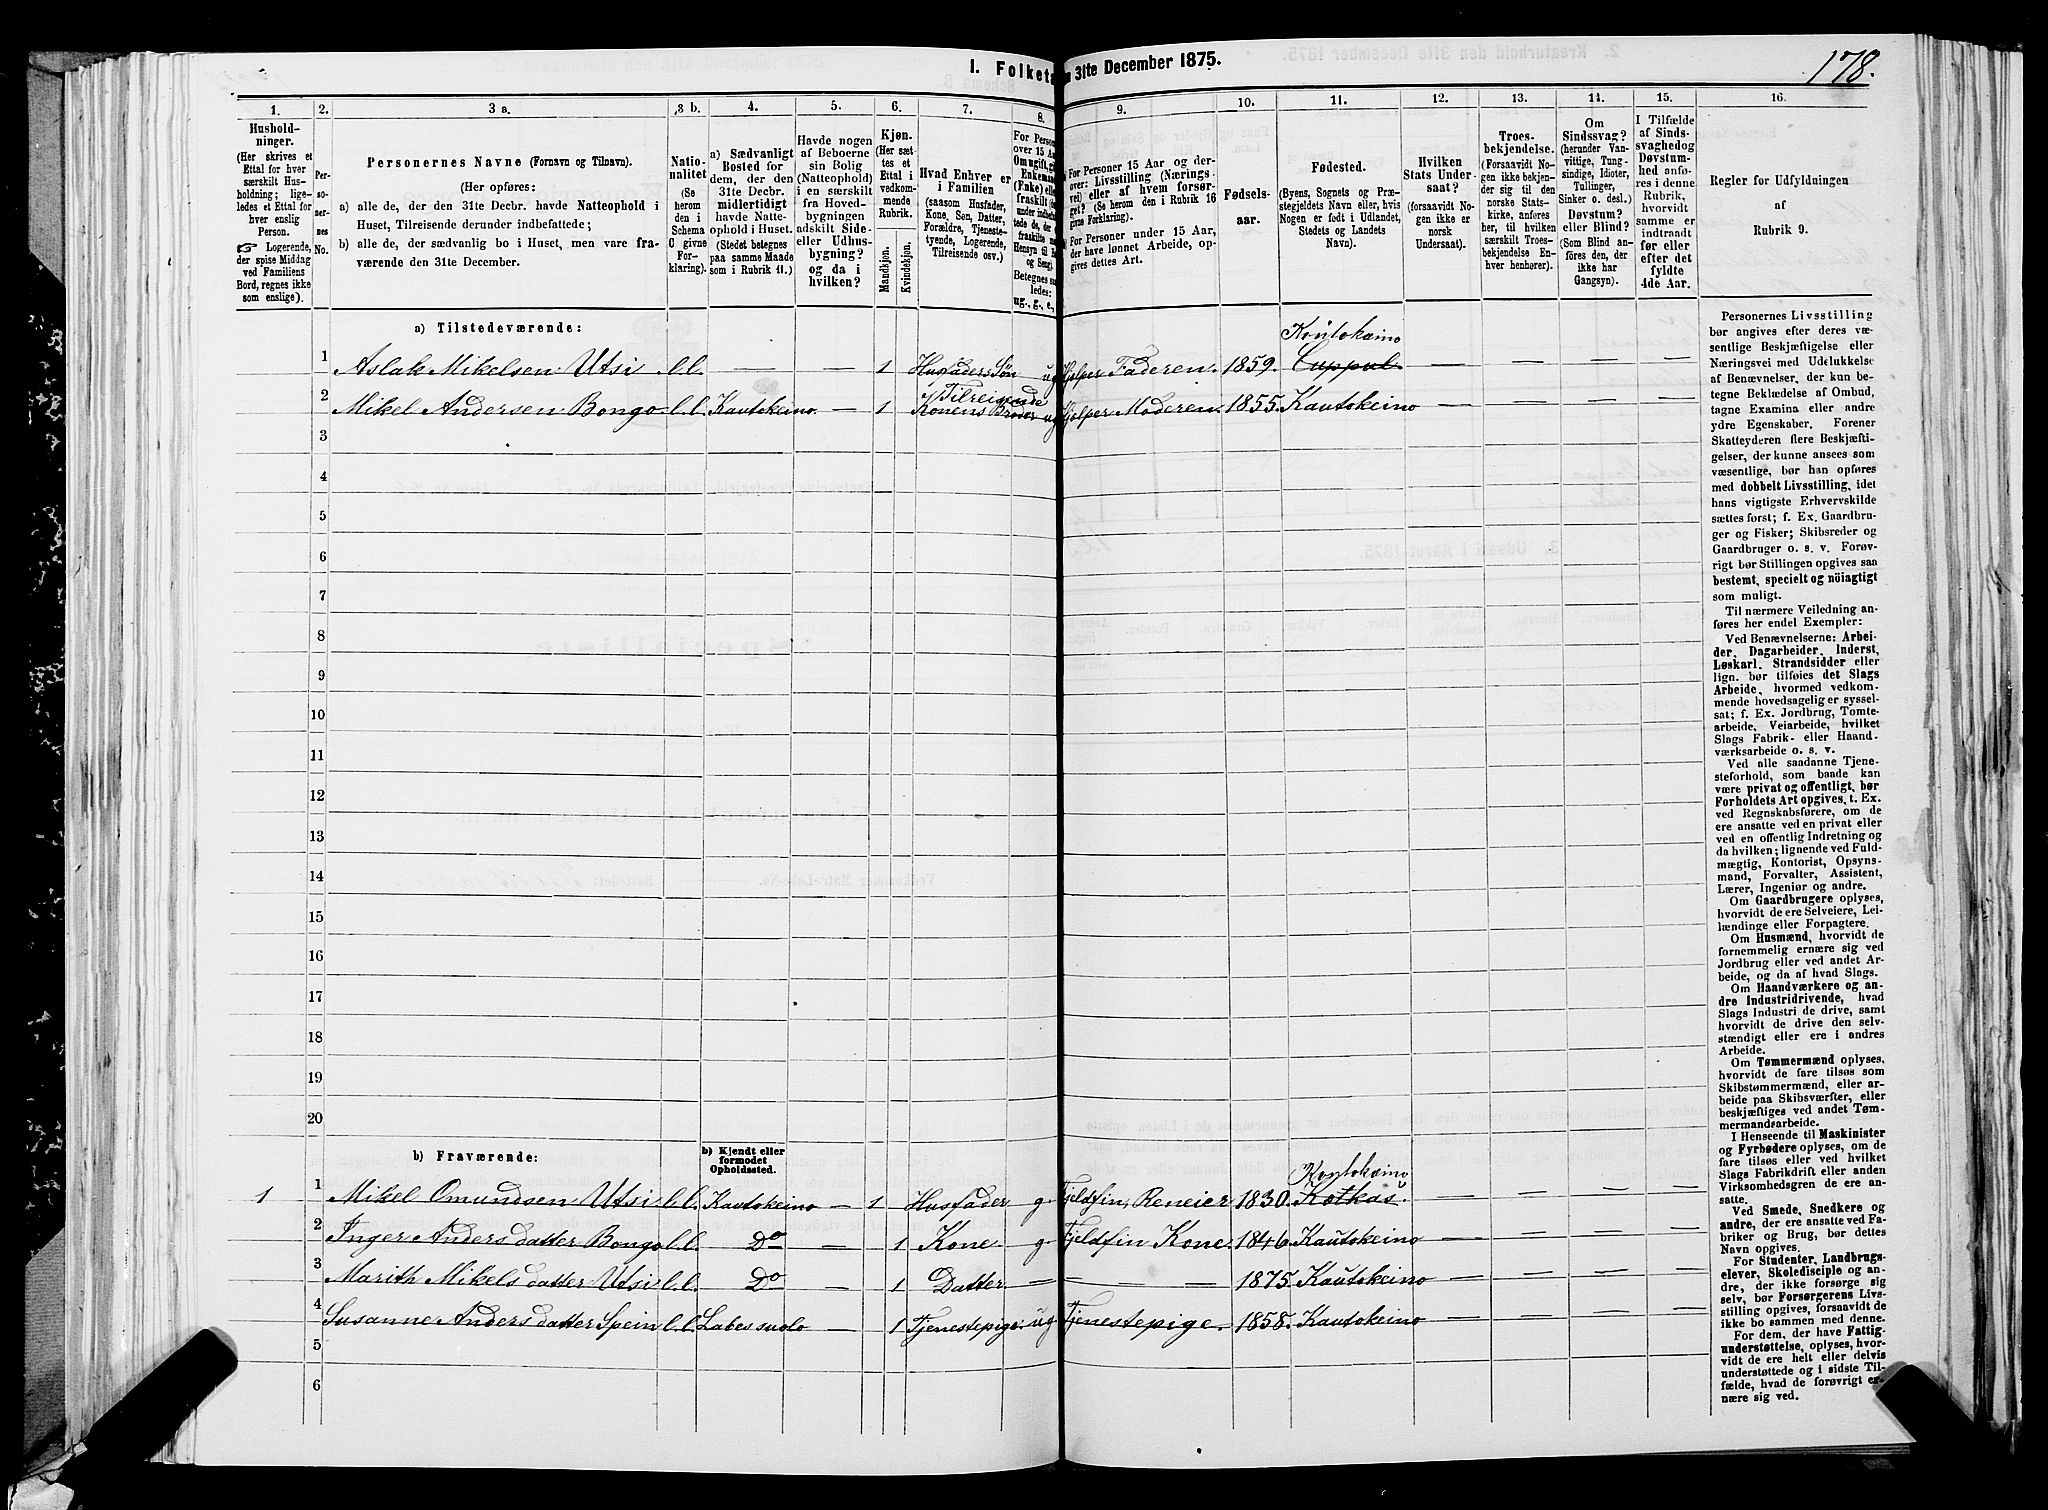 178.
I. Folketa n 31te December 1875.
1. 2. 3 a. 3 b. 4. 5. 6. 7. 8. 9. 10. 11. 12. 13. 14. 15. 16.
Hushold-
ninger.
(Her skrives et
Ettal for hver
særskilt Hus-
holdning; lige-
ledes et Ettal for
hver enslig
Person.
☞ Logerende,
der spise Middag
ved Familiens
Bord, regnes ikke
som enslige).
Per-
soner-
nes
No.
Personernes Navne (Fornavn og Tilnavn).
(Her opføres:
a) alle de, der den 31te Decbr. havde Natteophold i
Huset, Tilreisende derunder indbefattede;
b) alle de, der sædvanlig bo i Huset, men vare fra-
værende den 31te December.
Natio-
nalitet
(Se
herom
den i
Schema
C givne
For-
klaring).
a) Sædvanligt
Bosted for
dem, der den
31te Decbr.
midlertidigt
havde Natte-
ophold i Huset.
(Stedet betegnes
paa samme Maade
som i Rubrik 11.)
Havde nogen
af Beboerne
sin Bolig
(Natteophold)
i en særskilt
fra Hoved-
bygningen
adskilt Side-
eller Udhus-
bygning?
og da i
hvilken?
Kjøn.
(Her sæt-
tes et
Ettal i
vedkom-
mende
Rubrik.
Mandkjøn.
Kvindekjøn.
Hvad Enhver er
i Familien
(saasom Husfader,
Kone, Søn, Datter,
Forældre, Tjeneste-
tyende, Logerende,
Tilreisende osv.)
For Person
over 15 Aar
Om ugift, gi
Enkemand
(Enke) elle
fraskilt
Betegnes sa
ledes:
ug., g., e.,
For Personer 15 Aar og der-
over: Livsstilling (Nærings-
vei) eller af hvem forsør-
get? (Se herom den i Rubrik 16
givne Forklaring).
For Personer under 15 Aar,
der have lønnet Arbeide, op-
gives dettes Art.
Fødsels-
aar.
Fødested.
(Byens, Sognets og Præ-
stegjeldets Navn eller, hvis
Nogen er født i Udlandet,
Stedets og Landets
Navn).
Hvilken
Stats Under-
saat?
(forsaavidt No-
gen ikke er
norsk
Undersaat).
Troes-
bekjendelse.
(Forsaavidt No-
gen ikke bekjen-
der sig til den
norske Stats-
kirke, anføres
her, til hvilken
særskilt Troes-
bekjendelse En-
hver henhører).
Om
Sindssvag?
(herunder Van-
vittige, Tung-
sindige, Idioter,
Tullinger,
Sinker o. desl.)
Døvstum?
eller Blind?
(Som Blind an-
føres den, der
ikke har
Gangsyn).
I Tilfælde
af Sinds-
svaghed og
Døvstum-
hed anfø-
res i denne
Rubrik,
hvorvidt
samme er
indtraadt
før eller
efter det
fyldte
4de Aar.
Regler for Udfyldningen
af
Rubrik 9.
a) Tilstedeværende:
Kautokeino
1 Aslak Mikelsen Utsi l.l. — — 1 Husfaders Søn ug Hjelper Faderen. 1859. Cuppul — — — —
Tilreisende
2 Mikel Andersen Bongo l.l. Kautokeino — 1 Konens Broder ug Hjelper Moderen. 1855. Kautokeino — — — —
3
4
5
6
7
8
9
10
11
12
13
14
15
16
17
18
19
20
b) Fraværende:
b) Kjendt eller
formodet
Opholdssted.
Kautokeino
1 1 Mikel Omundsen Utsi l.l. Kautokeino — 1 Husfader g Fjeldfin, Reneier 1830. Kotkas — — — —
2 Inger Anders datter Bongo l.l. Do — 1 Kone g Fjeldfin Kone. 1846. Kautokeino — — — —
3 Marith Mikels datter Utsi l.l. Do — 1 Datter — — — 1875. Kautokeino — — — —
4 Susanne Anders datter Spein l.l. Labessuolo — 1 Tjenestepige. ug Tjenestepige. 1858. Kautokeino — — — —
5
6
Personernes Livsstilling
bør angives efter deres væ-
sentlige Beskjæftigelse eller
Næringsvei med Udelukkelse
af Benævnelser, der kun be-
tegne Beklædelse af Ombud,
tagne Examina eller andre
ydre Egenskaber. Forener
Skatteyderen flere Beskjæfti-
gelser, der kunne ansees som
væsentlige, bør han opføres
med dobbelt Livsstilling, idet
hans vigtigste Erhvervskilde
sættes først; f. Ex. Gaardbru-
ger og Fisker; Skibsreder og
Gaardbruger o. s. v. Forøv-
rigt bør Stillingen opgives saa
bestemt, specielt og nøiagtigt
som muligt.
Til nærmere Veiledning an-
føres her endel Exempler:
Ved Benævnelserne: Arbei-
der, Dagarbeider, Inderst,
Løskarl, Strandsidder eller
lign. bør tilføies det Slags
Arbeide, hvormed vedkom-
mende hovedsagelig er syssel-
sat; f. Ex. Jordbrug, Tomte-
arbeide, Veiarbeide, hvilket
Slags Fabrik- eller Haand-
værksarbeide o. s. v.
Ved alle saadanne Tjene-
steforhold, som baade kan
være privat og offentligt, bør
Forholdets Art opgives, t. Ex.
ved Regnskabsførere, om de
ere ansatte ved en privat eller
ved en offentlig Indretning og
da hvilken; lignende ved Fuld-
mægtig, Kontorist, Opsyns-
mand, Forvalter, Assistent,
Lærer, Ingeniør og andre.
Om Gaardbrugere oplyses,
hvorvidt de ere Selveiere, Lei-
lændinge eller Forpagtere.
Om Husmænd, hvorvidt de
fornemmelig ernære sig ved
Jordbrug eller ved andet Ar-
beide, og da af hvad Slags.
Om Haandværkere og an-
dre Industridrivende, hvad
Slags Industri de drive, samt
hvorvidt de drive den selv-
stændigt eller ere i andres
Arbeide.
Om Tømmermænd oplyses,
hvorvidt de fare tilsøs som
Skibstømmermænd, eller ar-
beide paa Skibsværfter, eller
beskjæftiges ved andet Tøm-
mermandsarbeide.
I Henseende til Maskinister
og Fyrbødere oplyses, om de
fare tilsøs eller ved hvilket
Slags Fabrikdrift eller anden
Virksomhedsgren de ere an-
satte.
Ved Smede, Snedkere og
andre, der ere ansatte ved Fa-
briker og Brug, bør dettes
Navn opgives.
For Studenter, Landbrugs-
elever, Skoledisciple og an-
dre, der ikke forsørge sig
selv, bør Forsørgerens Livs-
stilling opgives, forsaavidt de
ikke bo sammen med denne.
For dem, der have Fattig-
understøttelse, oplyses, hvor-
vidt de ere helt eller delvis
understøttede og i sidste Til-
fælde, hvad de forøvrigt er-
nære sig ved.